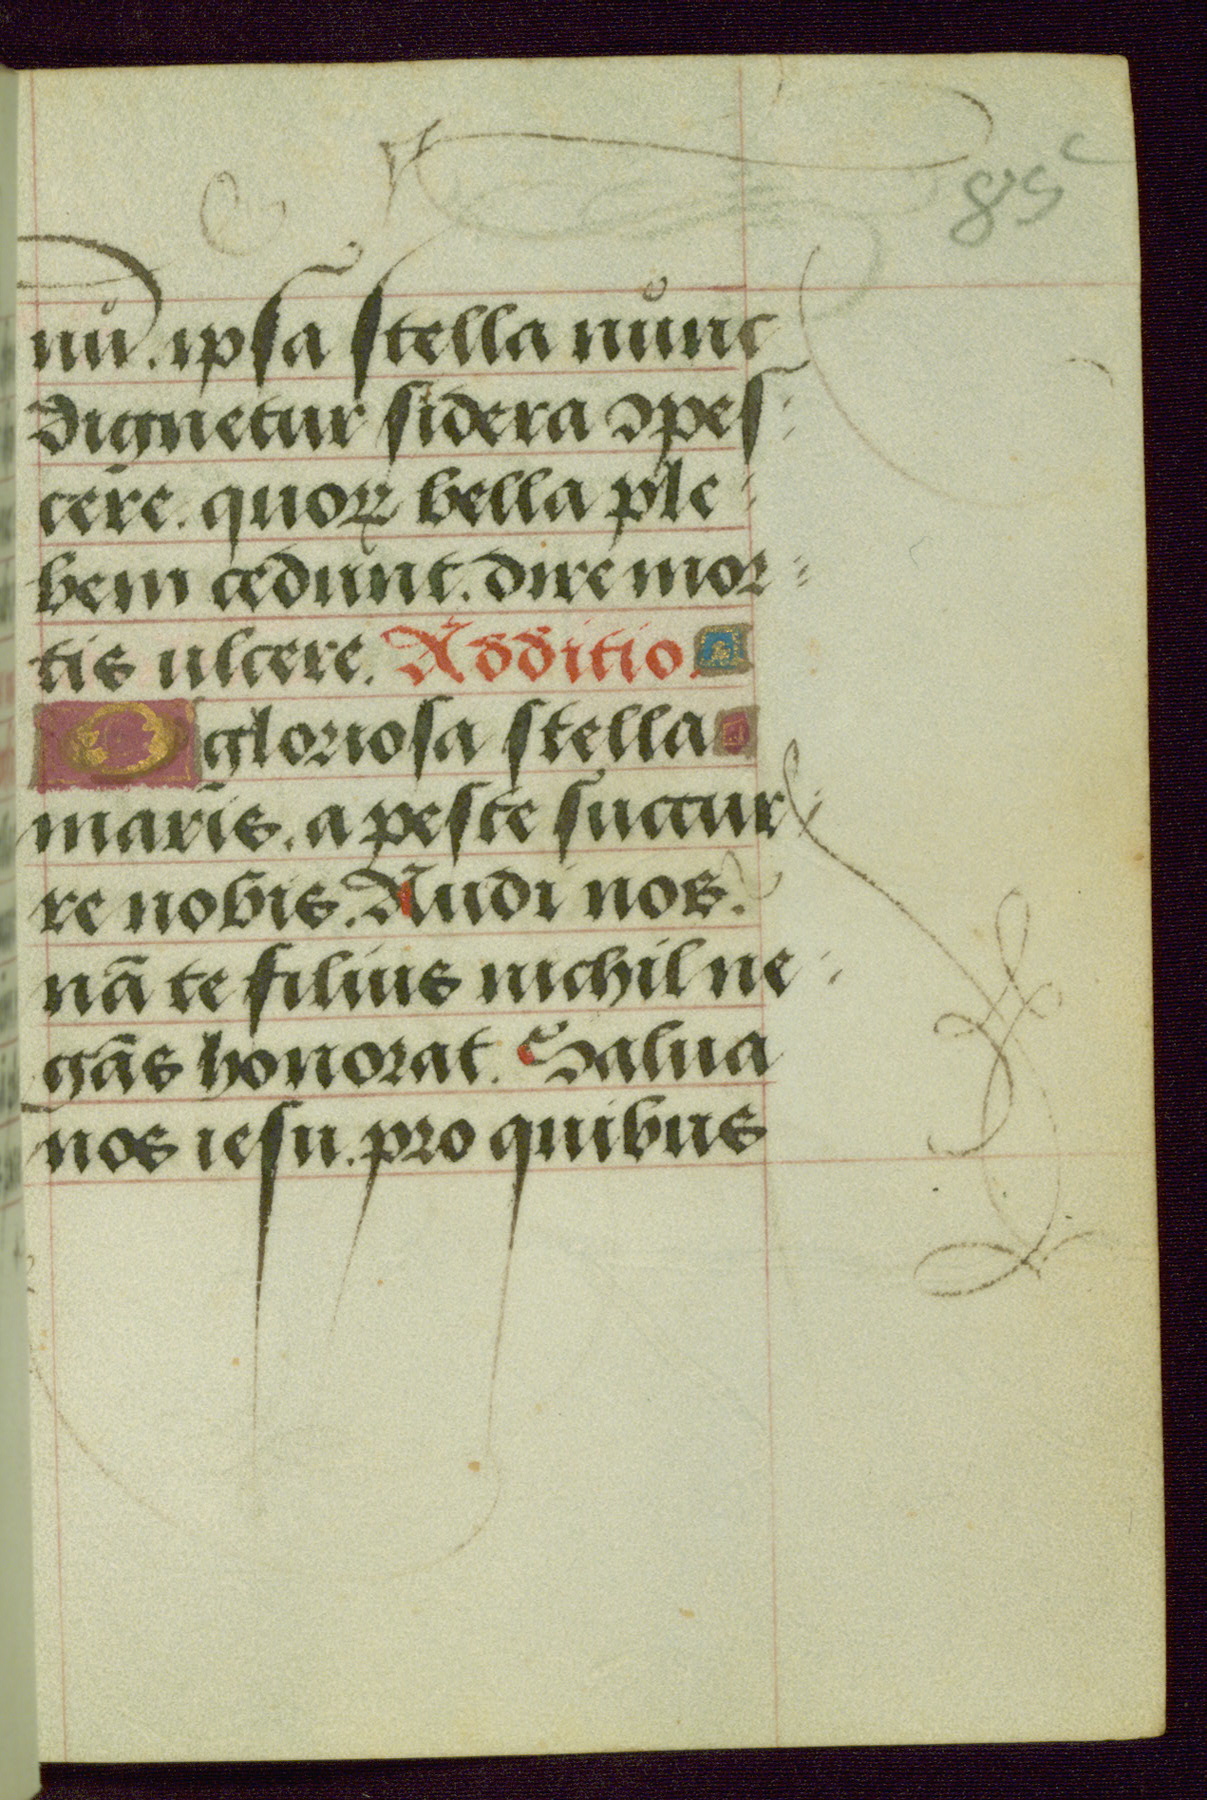 85c
nů. ipsa stella nůnc
dignetur sidera ↄpes-
cere. quoꝝ bella ple-
bem cedunt. dire mor-
tis ulcere. Additio.
O gloriosa stella
maris. a peste succur-
re nobis. Audi nos.
nā te filius nichil ne-
gās honorat. Salua
nos iesu. pro quibus